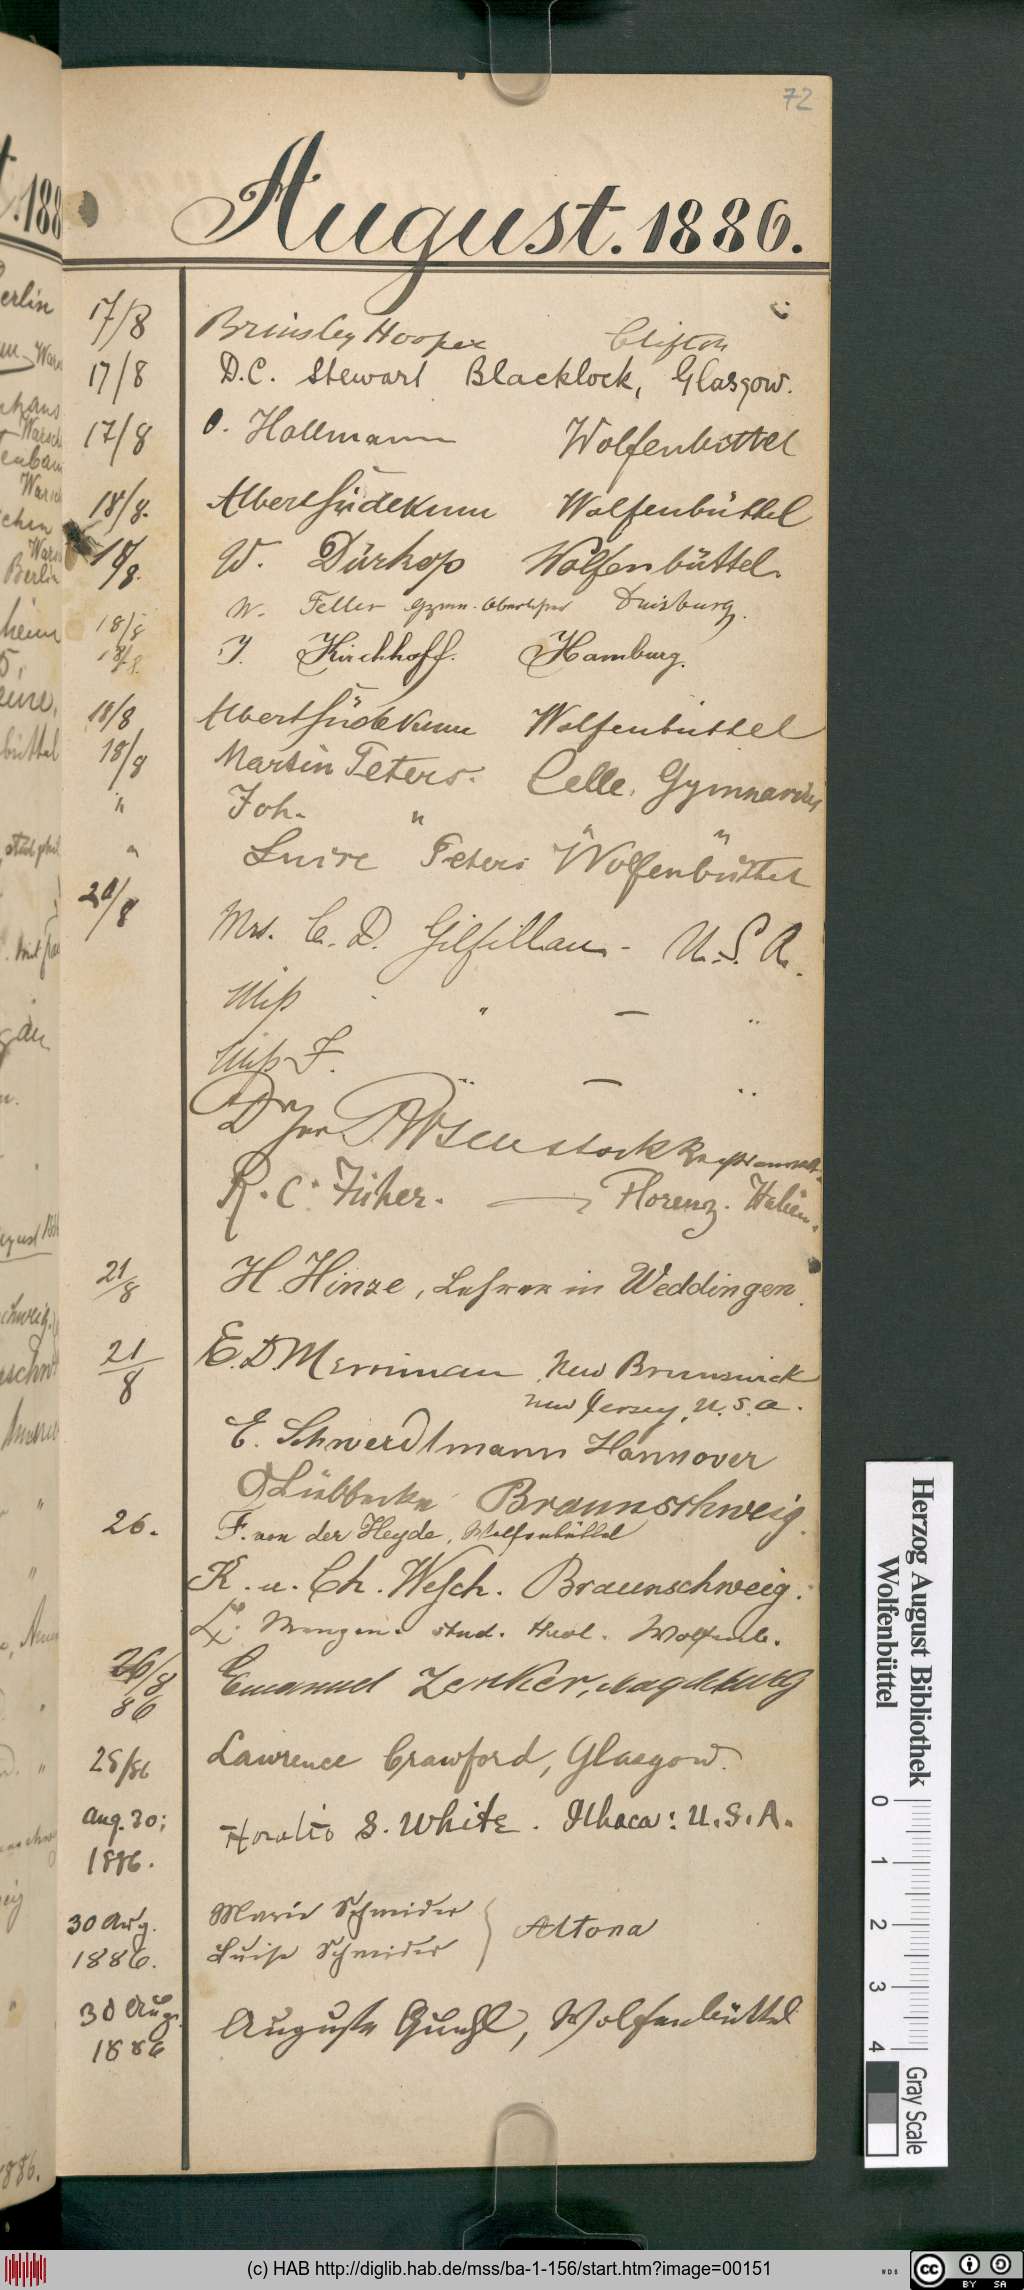 72
August. 1886.
17/8 Brinsley Hooper Clifton
17/8 D.C. Stewart Blacklock, Glasgow.
17/8 O. Hollmann Wolfenbüttel
18/8. Albert Südekum Wolfenbüttel
18/8. W. Dürkop Wolfenbüttel.
18/8 W. Feller Gymn. Oberlehrer Duisburg.
18/8. J. Kirchhoff. Hamburg.
18/8 Albert Südekum Wolfenbüttel
18/8 Martin Peters. Celle. Gymnasium
" Joh. " " "
" Luise Peters Wolfenbüttel
20/8 Mrs. C. D. Gilfillan - U. S. A.
Miß " — "
Miß F. " — "
Dr jur Rechtsanwalt
R. C. Fisher. — Florenz. Italien.
21/8 H. Hinze, Lehrer in Weddingen.
21/8 E. D. Merriman New Brunswick
New Jersey, U. S. A.
E. Schwerdtmann Hannover
O Lübbecke Braunschweig.
26. F. von der Heyde, Wolfenbüttel
K. u. Ch. Wesch. Braunschweig.
stud. theol. Wolfenb.
26/8 86 Emanuel Zenker, Magdeburg
28/86 Lawrence Crawford, Glasgow.
Aug. 30; 1886. Horatio S. White. Ithaca: U.S.A.
30 Aug. Marie Schneider
1886. Luise Schneider } Altona
30 Aug. 1886 Auguste , Wolfenbüttel
Herzog August Bibliothek
Wolfenbüttel
0 1 2 3 4
Gray Scale
(c) HAB http://diglib.hab.de/mss/ba-1-156/start.htm?image=00151
cc BY SA